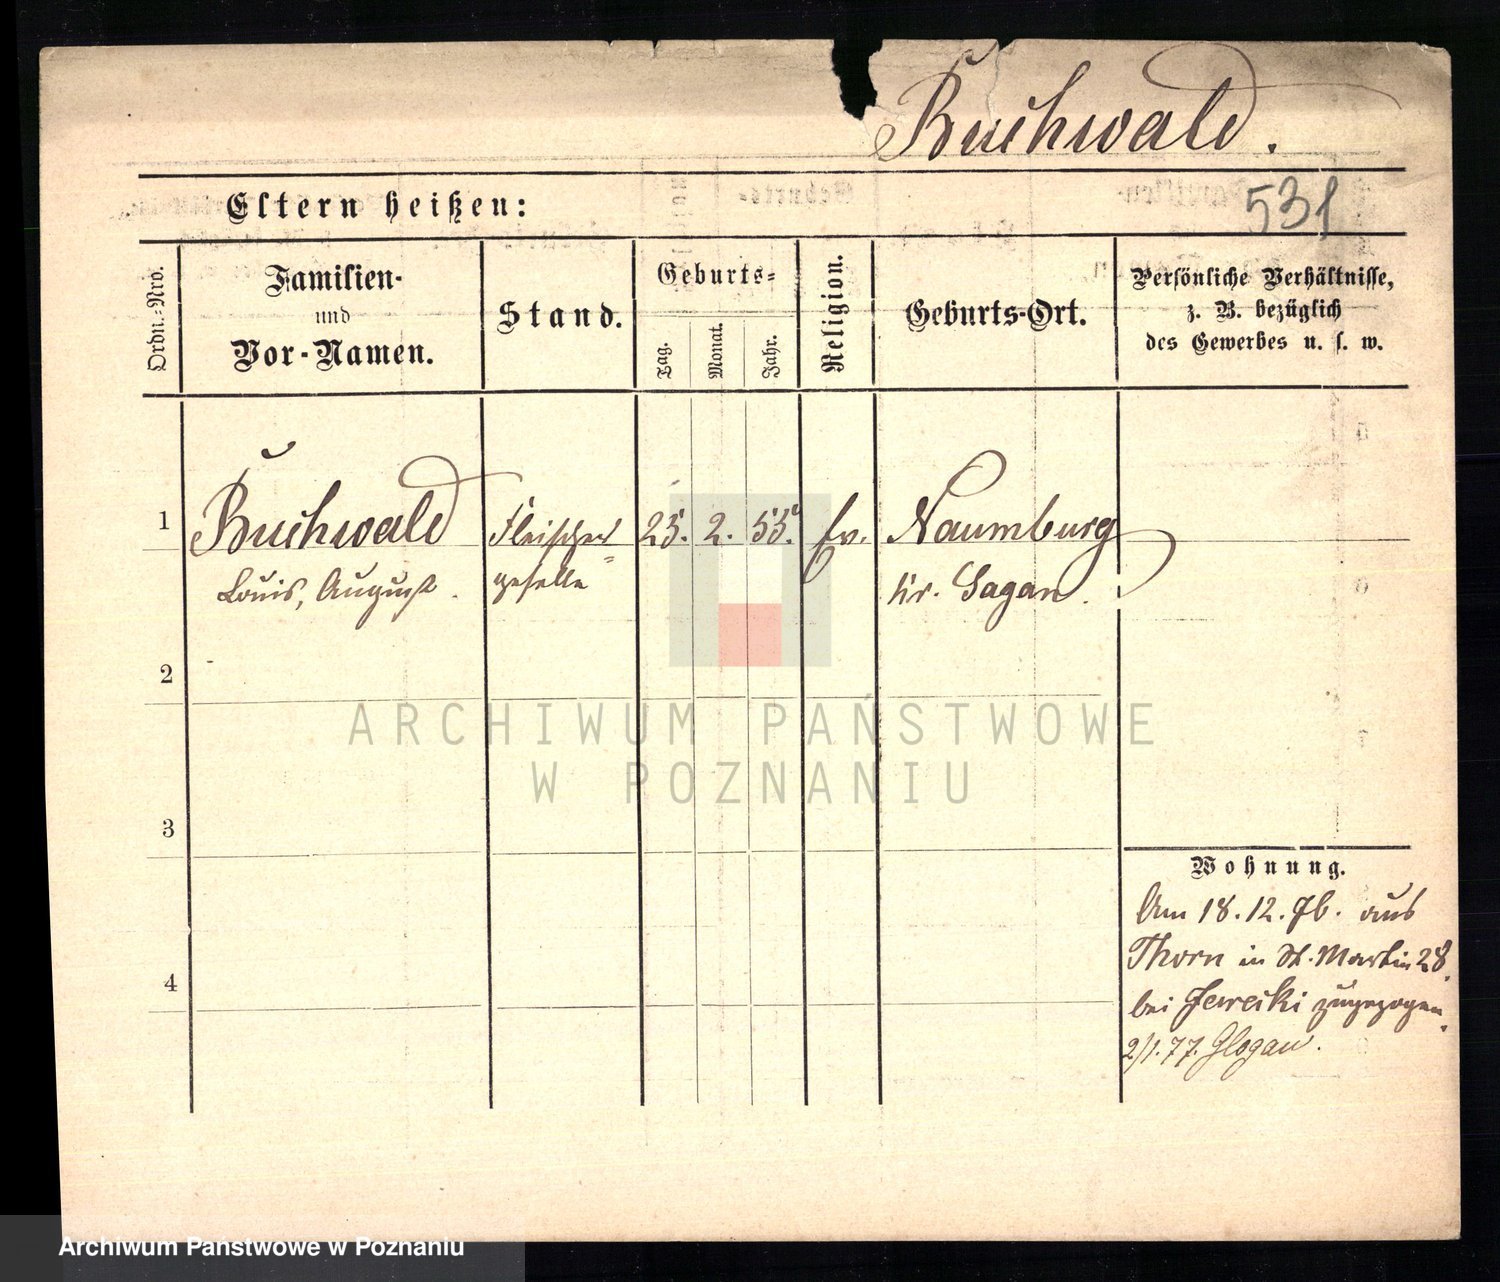 Buchwald.
531
Eltern heißen:
Ordn.-Nro.
Familien-
und
Vor-Namen.
Stand.
Geburts-
Tag.
Monat.
Jahr.
Religion.
Geburts-Ort.
Persönliche Verhältnisse,
z. B. bezüglich
des Gewerbes u. s. w.
1
Buchwald
Louis, August.
Fleischer
geselle
25. 2. 55.
ev.
Naumburg
Kr. Sagan.
2
3
4
Wohnung.
Am 18.12.76. aus
Thorn in St. Martin 28.
bei zugezogen.
2/1.77. Glogau.
ARCHIWUM PAŃSTWOWE
W POZNANIU
Archiwum Państwowe w Poznaniu